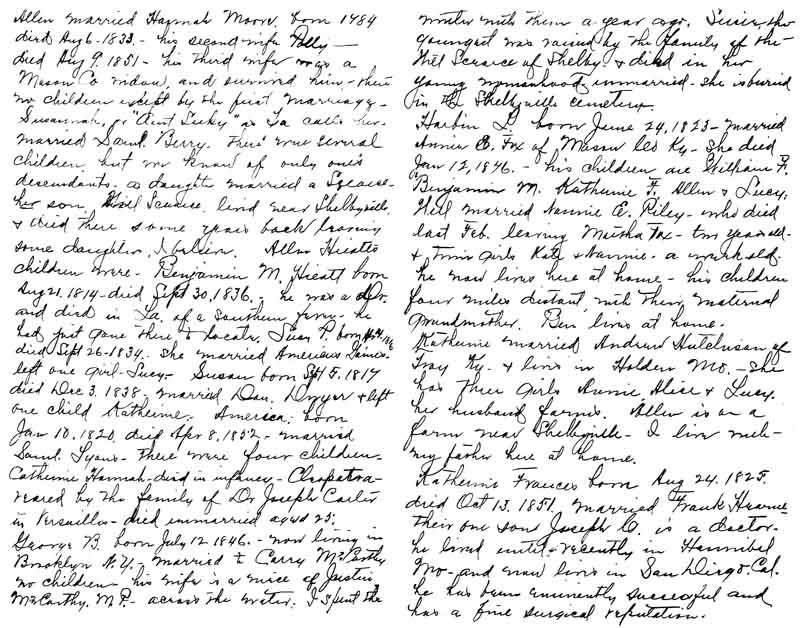 Allen married Haynah Moore, born 1784
died Aug 6-1833.- his second wife Polly -
died Aug 9. 1851 - his third wife was a
Mason Co widow, and survived him - there
no children except by the first marriage -
Susannah, or "Aunt Sukey" as Pa calls her
married Saml. Berry. There were several
children, but we know of only one's
descendants. a daughter married a Scearce-
her son Will Scearce, lived near Shelbyville
& died there some years back leaving
some daughter, I believe. Allen Hieatts
children were - Benjamin M. Hieatt born
Aug 21. 1814 - died Sept 30, 1836.- he was a Dr.
and died in La. of a Southern fever - he
had just gone there to locate. Susan P. born
died Sept 26-1834. She married Americus
left one girl - Lucy - Susan born Sept 5. 1817
died Dec 3. 1838. married Dan. Dwyer & left
one child Katherine. America, born
Jan 10. 1820. died Apr 8. 1852. - married
Saml. Lyons - There were four children -
Catherine Hannah - died in infancy - Cleopatra -
reared by the family of Dr Joseph Carter
in Versailles - died unmarried aged 25.
George B. born July 12 1846. - now living in
Brooklyn N.Y. - married to Carry McCarthy
no children his wife is a niece of Justin
McCarthy. M.P. - across the water. I spent the
winter with them a year ago. Susie, the
youngest was raised by the family of the
Will Scearce of Shelby & died in her
young womanhood unmarried - she is buried
in the Shelbyville cemetery.
Harbin L. born June 24, 1823 - married
Annie E. Fox of Mason Co Ky - she died
Jan 12, 1896. - his children are William F.
Benjamin M. Katherine F. Allen & Lucy.
Will married Nannie E. Riley - who died
last Feb. leaving Martha Fox - two years old -
& twin girls Katy & Nannie - a week old.
he now lives here at home - his children
four miles distant with their maternal
grandmother. Ben lives at home.
Katherine married Andrew Hutchison of
Troy Ky. & lives in Holden Mo. - She
has three girls Annie, Alise & Lucy.
her husband farms. Allen is on a
farm near Shelbyville - I live with
my father here at home.
Katherine Frances born Aug 24. 1825.
died Oct 13. 1851. married Frank Hearne
their one son Joseph C. is a doctor.
he lived until recently in Hannibal
Mo - and now lives in San Diego. Cal.
he has been eminently successful and
has a fine surgical reputation.